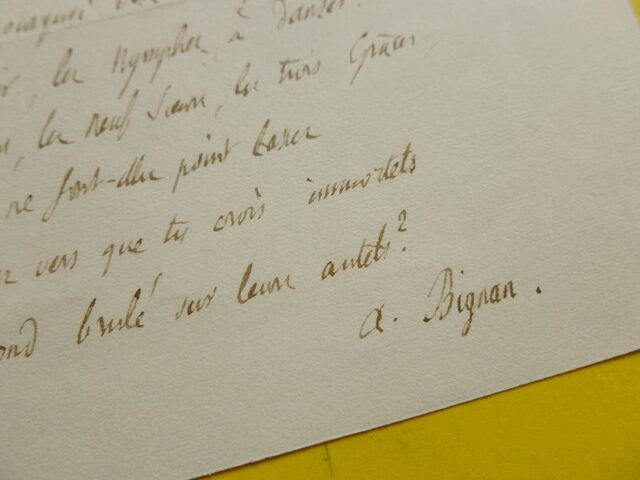 les nymphes, à danser.
les neuf Sœurs, les trois Grâces,
ne font-elles point
vers que tu crois immortels
brulé sur leurs autels?
A. Bignan.